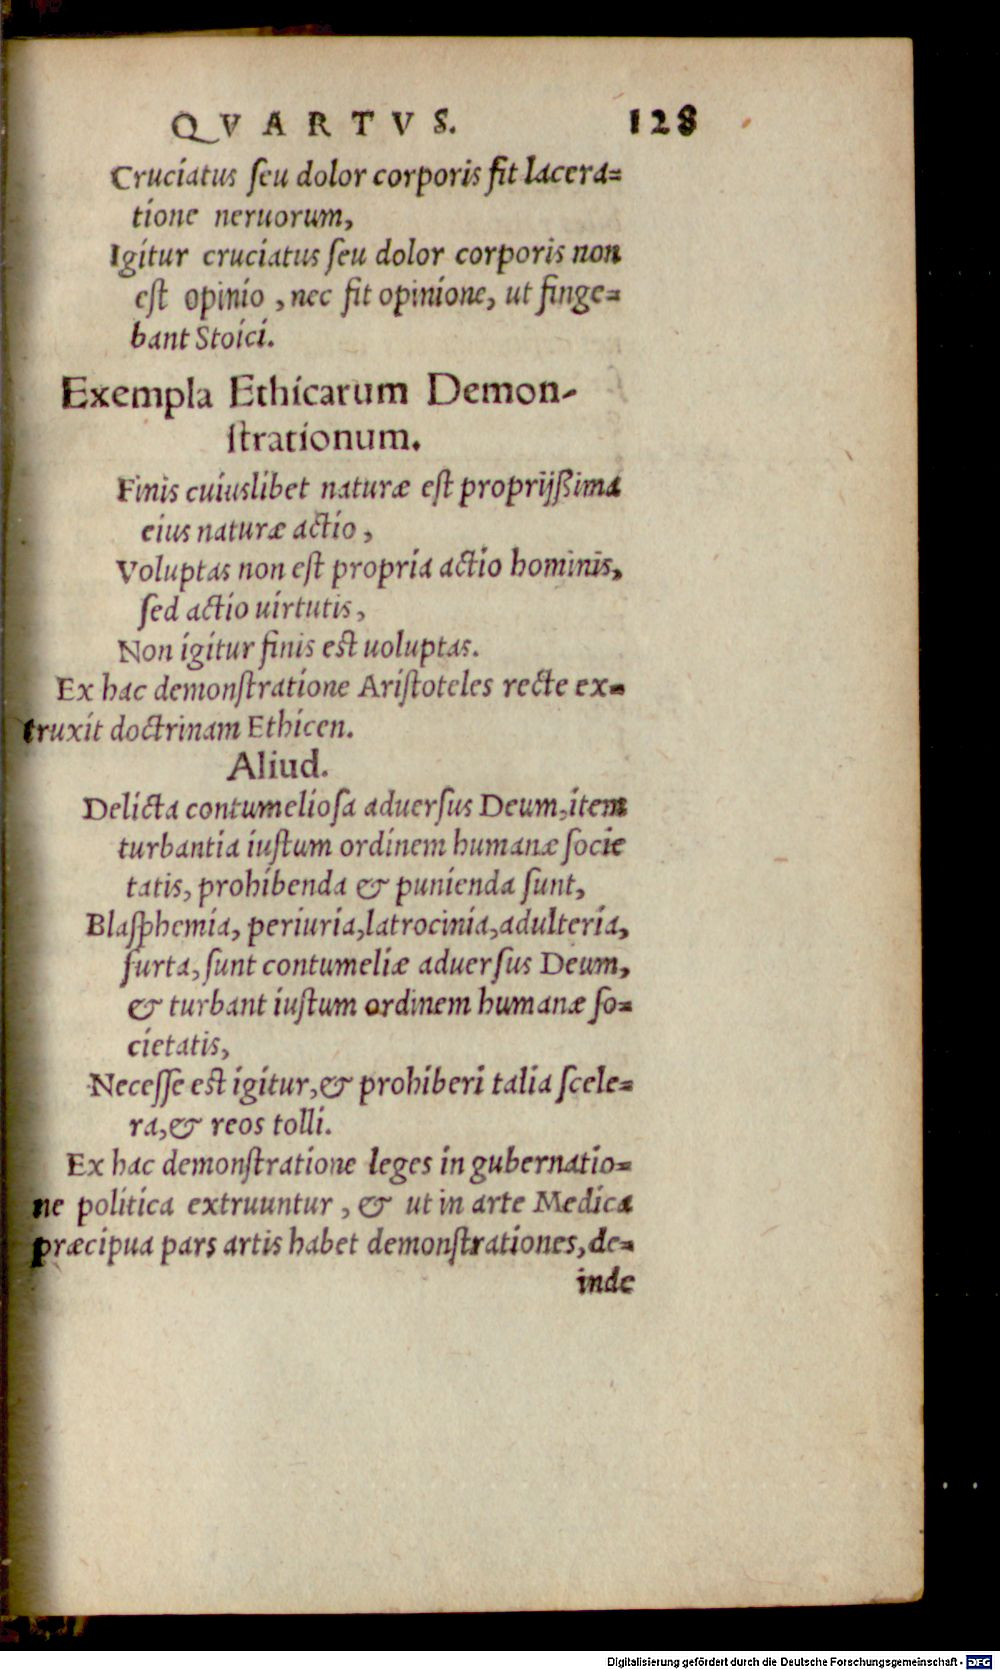 QVARTVS. 128
Cruciatus ſeu dolor corporis fit lacera=
tione neruorum,
Igitur cruciatus ſeu dolor corporis non
eſt opinio, nec fit opinione, ut finge=
bant Stoici.
Exempla Ethicarum Demon-
ſtrationum.
Finis cuiuslibet naturæ eſt proprijßima
eius naturæ actio,
Voluptas non eſt propria actio hominis,
ſed actio uirtutis,
Non igitur finis eſt uoluptas.
Ex hac demonſtratione Ariſtoteles recte ex=
truxit doctrinam Ethicen.
Aliud.
Delicta contumelioſa aduerſus Deum, item
turbantia iuſtum ordinem humanæ ſocie
tatis, prohibenda & punienda ſunt,
Blaſphemia, periuria, latrocinia, adulteria,
furta, ſunt contumeliæ aduerſus Deum,
& turbant iuſtum ordinem humanæ ſo=
cietatis,
Neceſſe eſt igitur, & prohiberi talia ſcele=
ra, & reos tolli.
Ex hac demonſtratione leges in gubernatio=
ne politica extruuntur, & ut in arte Medica
præcipua pars artis habet demonſtrationes, de=
inde
Digitalisierung gefördert durch die Deutsche Forschungsgemeinschaft - DFG